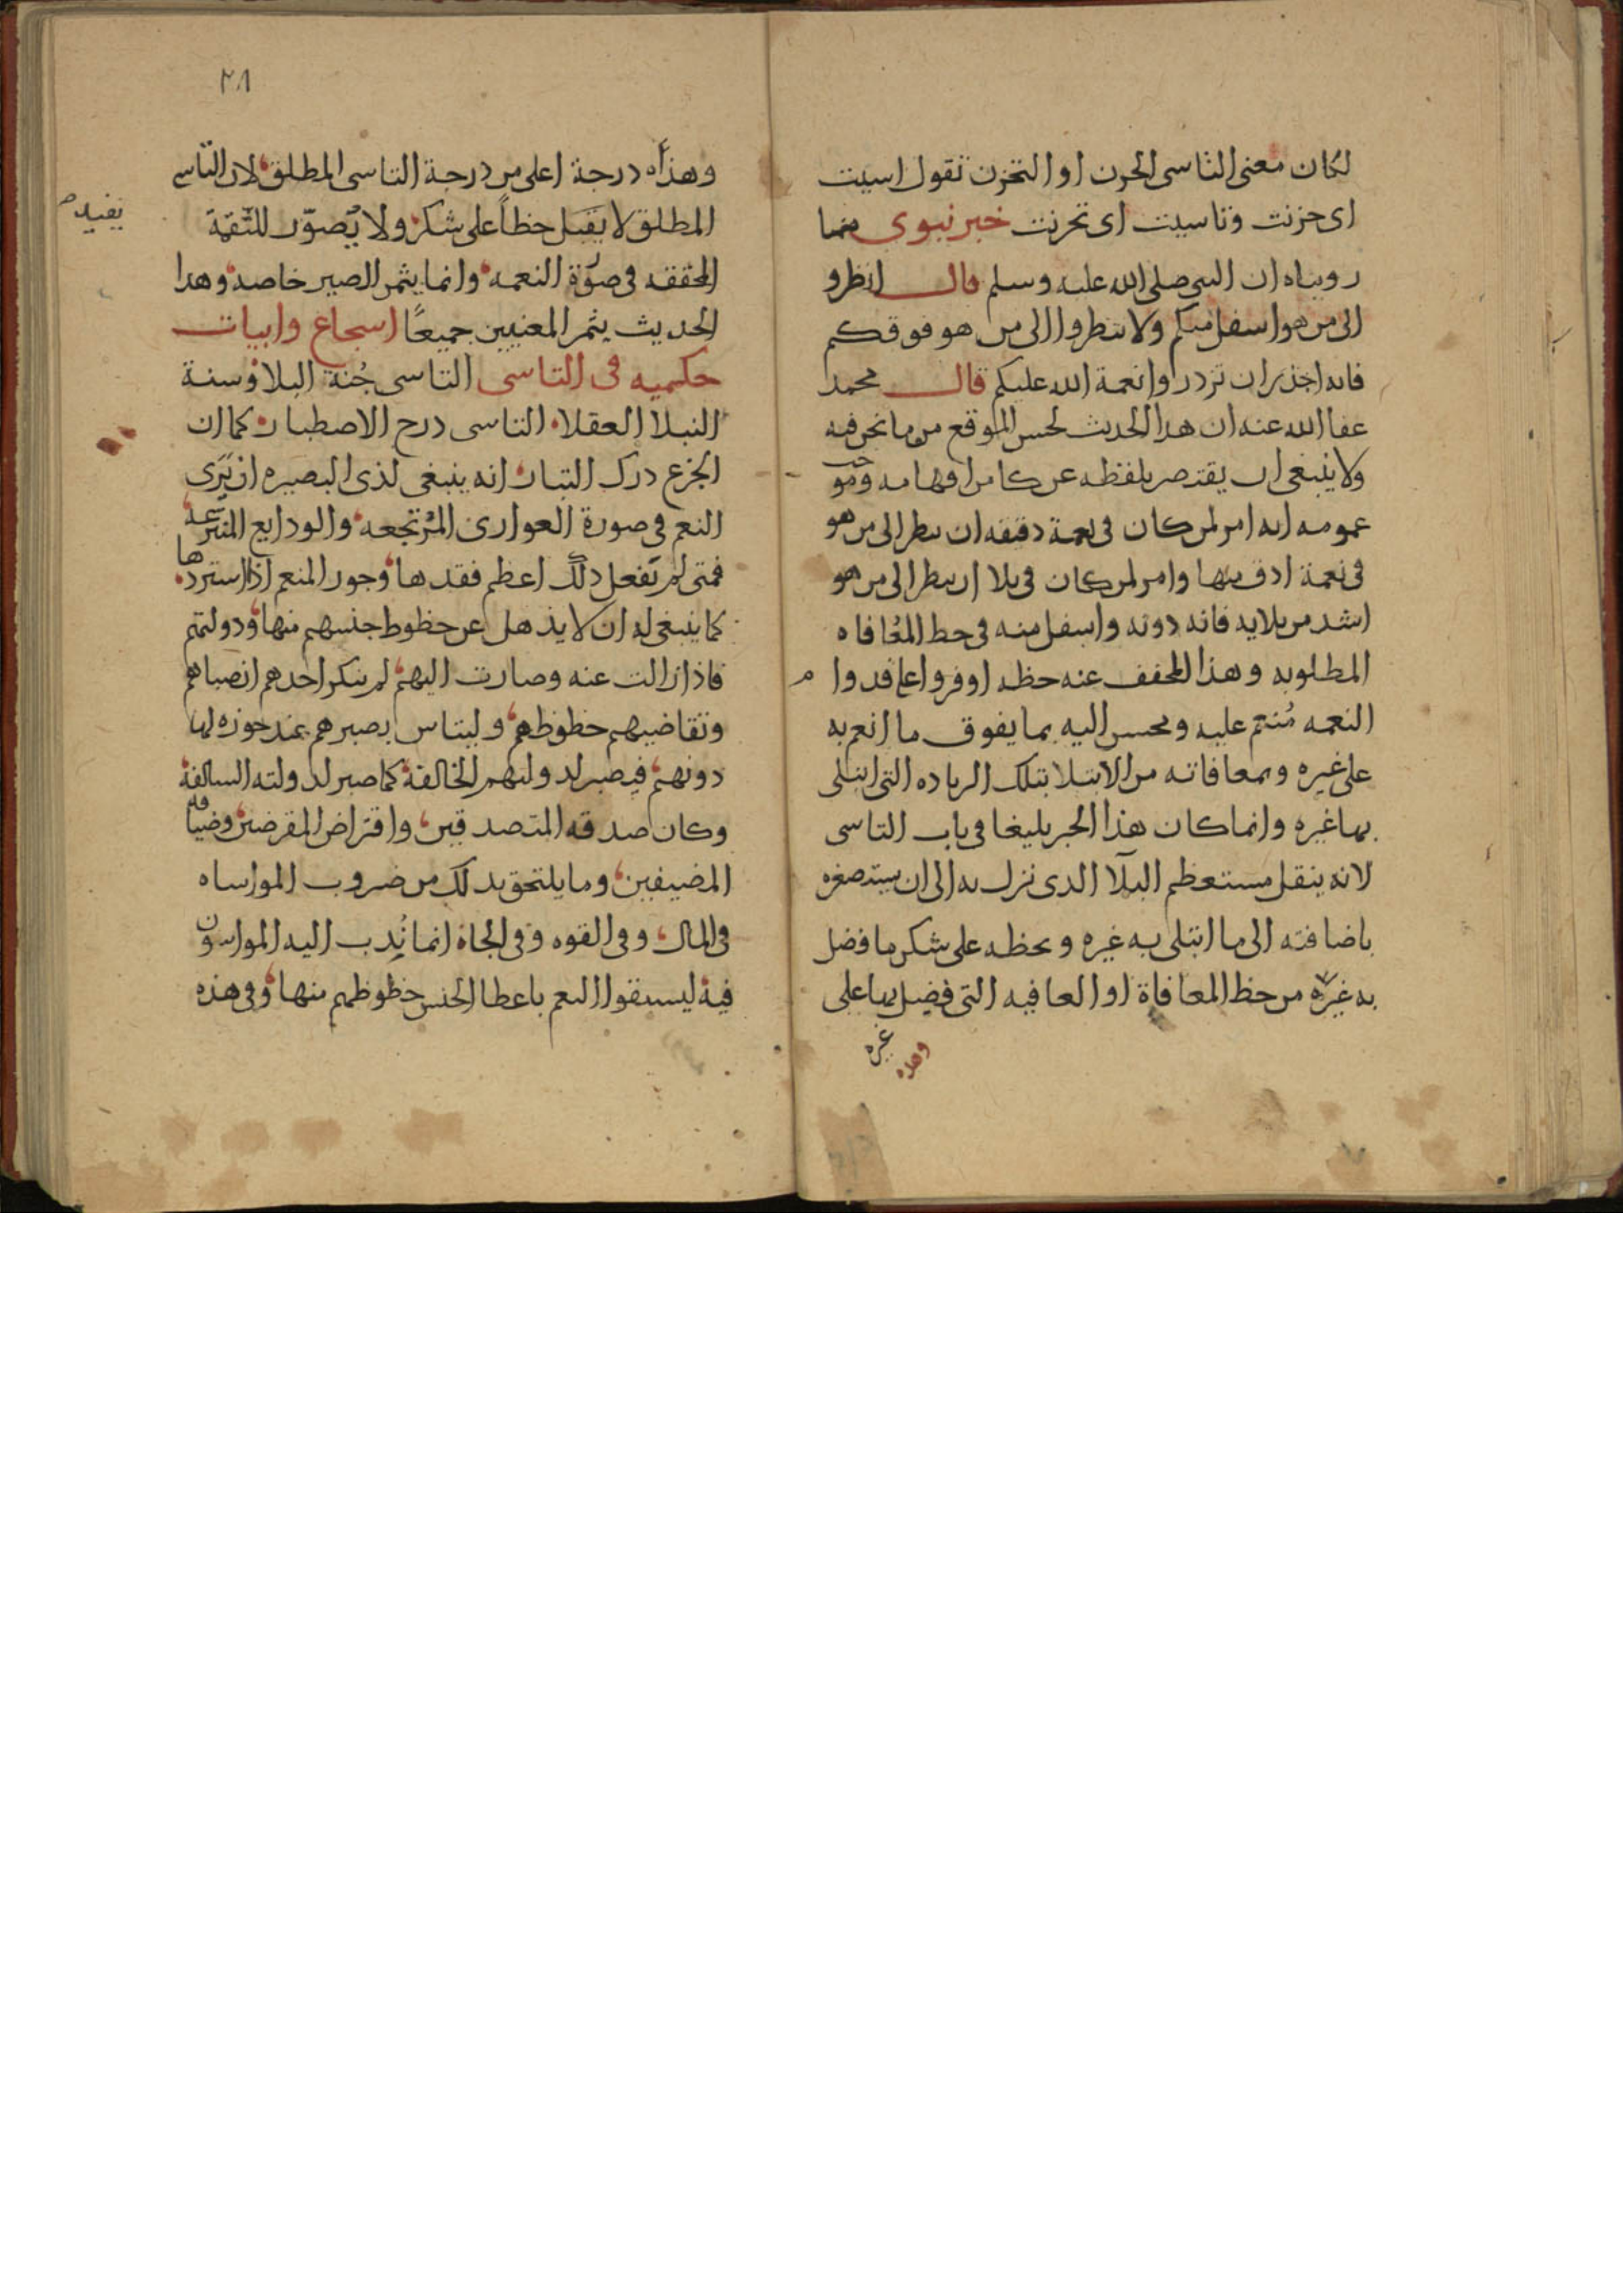 لكان معنى التاسى الحزن او التحزن تقول اسيت
اى حزنت وتاسيت اى تحزنت خبر نبوى مما
رويناه ان النبي صلى الله عليه وسلم قال انظروا
الى من هو اسفل منكم ولا تنظروا الى من هو فوقكم
فانه اجدر ان تزدروا نعمة الله عليكم قال محمد
عفا الله عنه ان هذا الحديث لحسن الموقع من ما نحن فيه
ولا ينبغى ان يقتصر بلفظه عن كامن افهامه
عمومه انه امر لمن كان فى نعمة دقيقه ان ينظر الى من هو
فى نعمة ادق منها وامر لمن كان فى بلا ان ينظر الى من هو
اشد من بلايه فانه دونه واسفل منه فى حظ المعافاه
المطلوبه وهذا المخفف عنه حظه اوفر
النعمه مُنعم عليه ومحسن اليه بما يفوق ما انعم به
على غيره وبمعافاته من الابتلا بتلك الزياده التى ابتلى
بها غيره وانما كان هذا الخبر بليغا فى باب التاسى
لانه ينقل مستعظم البلآ الذى نزل به الى ان يستصغره
باضافته الى ما ابتلى به غيره ويحظه على شكر ما فضل
به غيره من حظ المعافاة او العافيه التى فضل بها على
غيره
وهذه
٢٨
وهذه درجة اعلى من درجة التاسى المطلق لان التاسى
المطلق لا يقبل حظاً على شكر ولا يُصوّر للنّقمة
المحققه فى صوّرة النعمه وانما يثمر الصبر خاصه وهذا
الحديث يثمر المعنيين جميعًا اسجاع وابيات
حكميه فى التاسى التاسى جُنة البلا وسنة
النبلا العقلا التاسى درج الاصطبار كما ان
الجزع درك التبار انه ينبغى لذى البصيره ان يَرى
النعم فى صورة العوارى المُرتجعه والودايع المنتزعه
فمتى لم يفعل ذلك اعظم فقدها وجور المنعم اذا استردها
كما ينبغى له ان لا يذهل عن حظوظ جنسهم منها ودولتهم
فاذا زالت عنه وصارت اليهم لم ينكر احدهم انصباهم
وتقاضيهم حظوظهم وليتاس بصبرهم عند حوزه لها
دونهم فيصبر لدولتهم الخالفة كما صبر لدولته السالفة
وكان صدقه المتصدقين واقتراض المقرضين وضيافه
المضيفين وما يلتحق بذلك من ضروب المواساه
فى المال وفى القوه وفى الجاة انما نُدب اليه المواسون
فيه ليستبقوا النعم باعطا الجنس حظوظهم منها وفى هذه